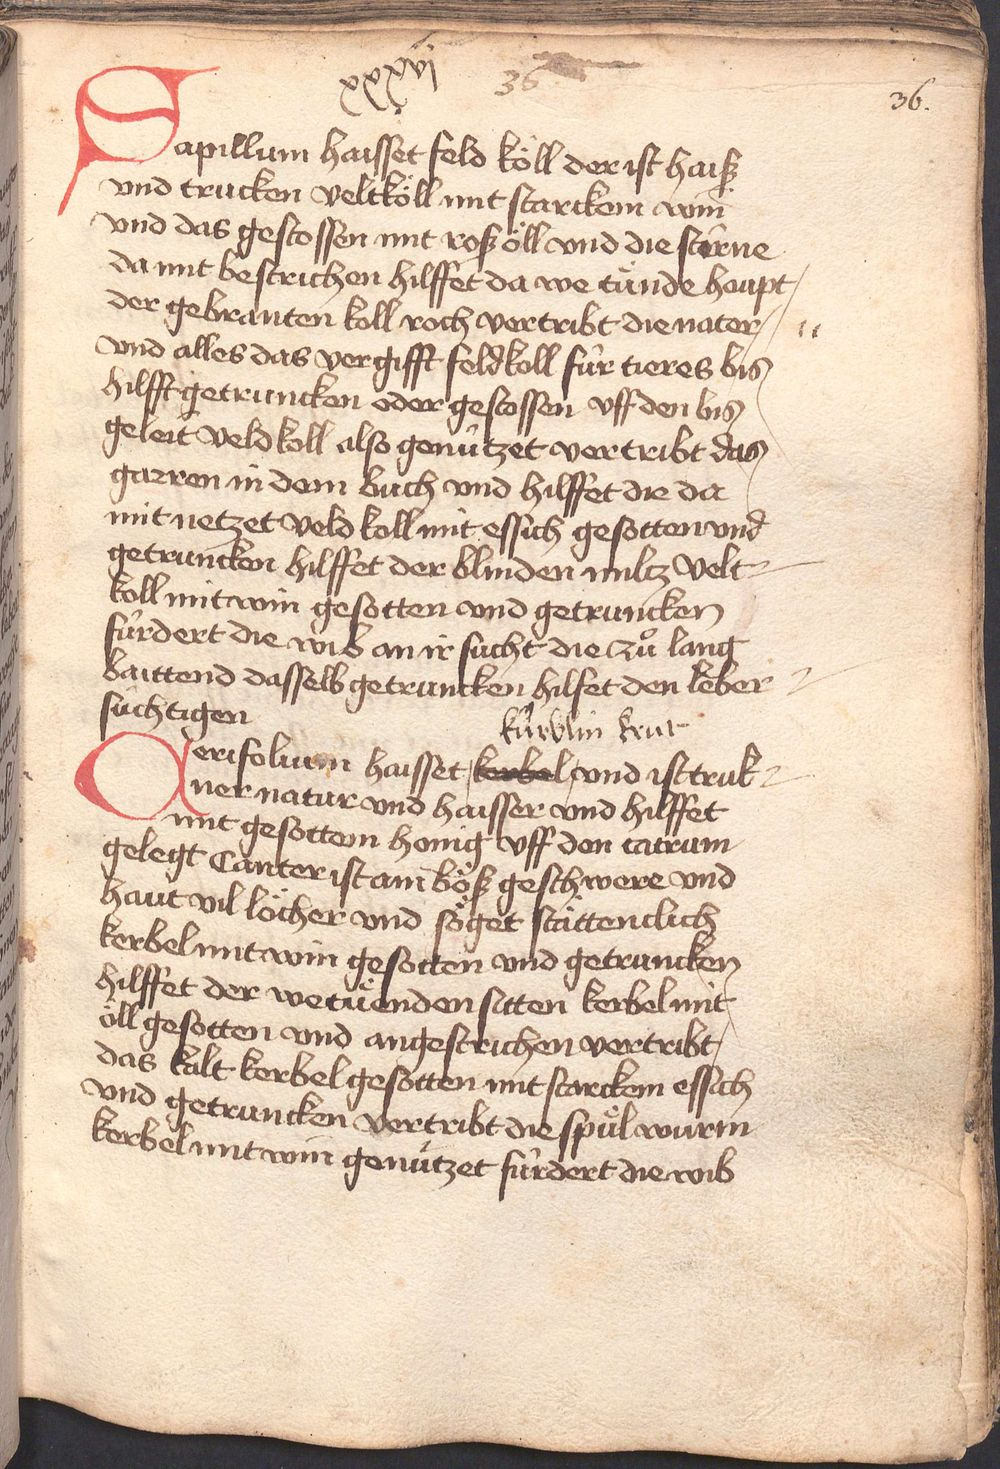 xxxvj 36 36.
Sapillum haisset feld köll der ist haiß
vnd trucken veltköll mit starckem win
vnd das gestossen mit roß öll vnd die stirne
da mit bestrichen hilffet da we tünde houpt
der gebranten koll roch vertribt die nater
vnd alles das vergifft feldkoll für tieres bis
hilfft getruncken oder gestossen vff den bis
geleit veld koll also genützet vertribt das
garren in dem buch vnd hilffet die da
mit netzet veld koll mit essich gesotten vnd
getruncken hilffet der blinden miltz velt
koll mit win gesotten vnd getruncken
fürdert die wib an ir sucht die zů lang
baittend dasselb getruncken hilfet den leber
süchtigen
kürvlin krut
Cerifolium haisset kerbel vnd ist truk
ner natur vnd haisser vnd hilffet
mit gesottem honig vff den catrum
gelegt Canter ist ain böß geschwere vnd
haut vil löcher vnd söget stättenclich
kerbel mit win gesotten vnd getruncken
hilffet der wetuenden sitten kerbel mit
öll gesotten vnd angestrichen vertribt
das kalt kerbel gesotten mit starckem essich
vnd getruncken vertribt die spůl wurm
kerbel mit win genützet fürdert die wib